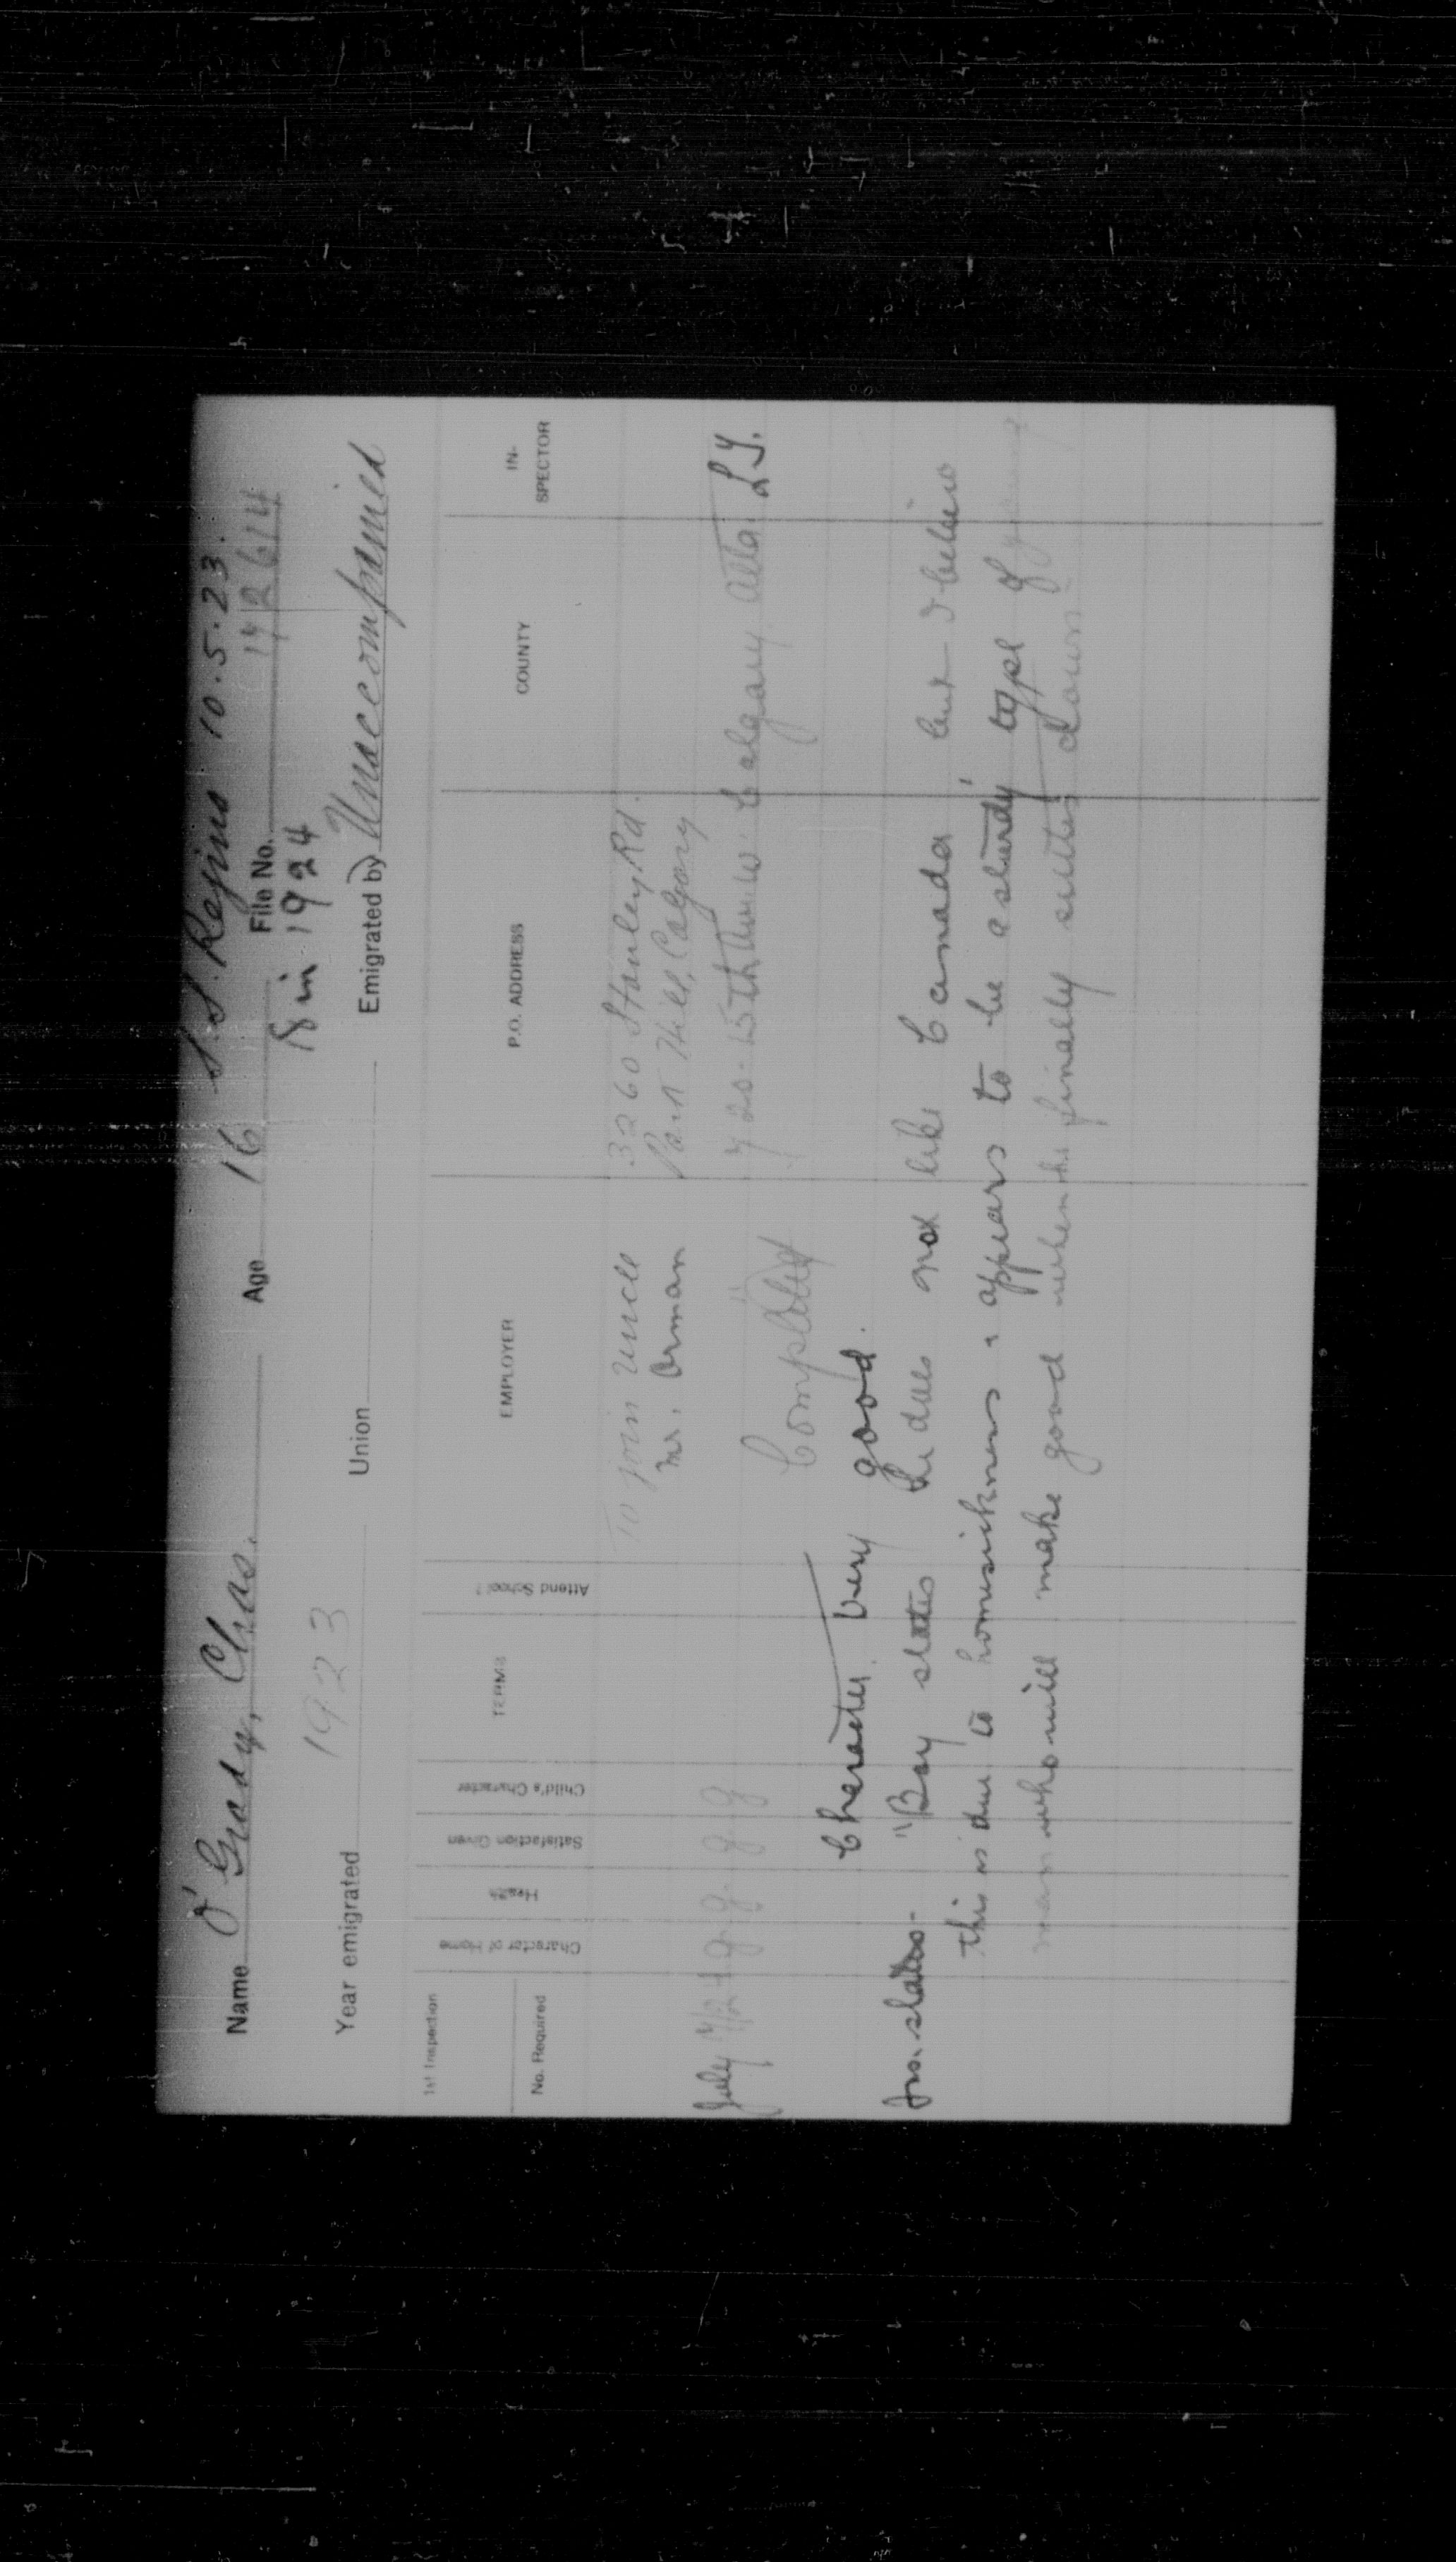 Name O'Grady, Chas. Age 16 S.S. Regina 10.5.23.
File No. 192614
8 in 1924
Year emigrated 1923 Union Emigrated by Unaccompanied
1st Inspection
No. Required
Character of Home
Health
Satisfaction Given
Child's Character
TERMS
Attend School?
EMPLOYER
P.O. ADDRESS
COUNTY
IN-
SPECTOR
To join Uncle 3260 Stanley Rd.
Mr. Orman Part Hill, Calgary
July g. g. g. g 720-15th Ave W Calgary Alta. L.Y.
Completed
Character Very good.
Ins. states - "Boy states he does not like Canada, but I believe
this is due to homesickness & appears to be a sturdy type of young
man who will make good when he finally settles down